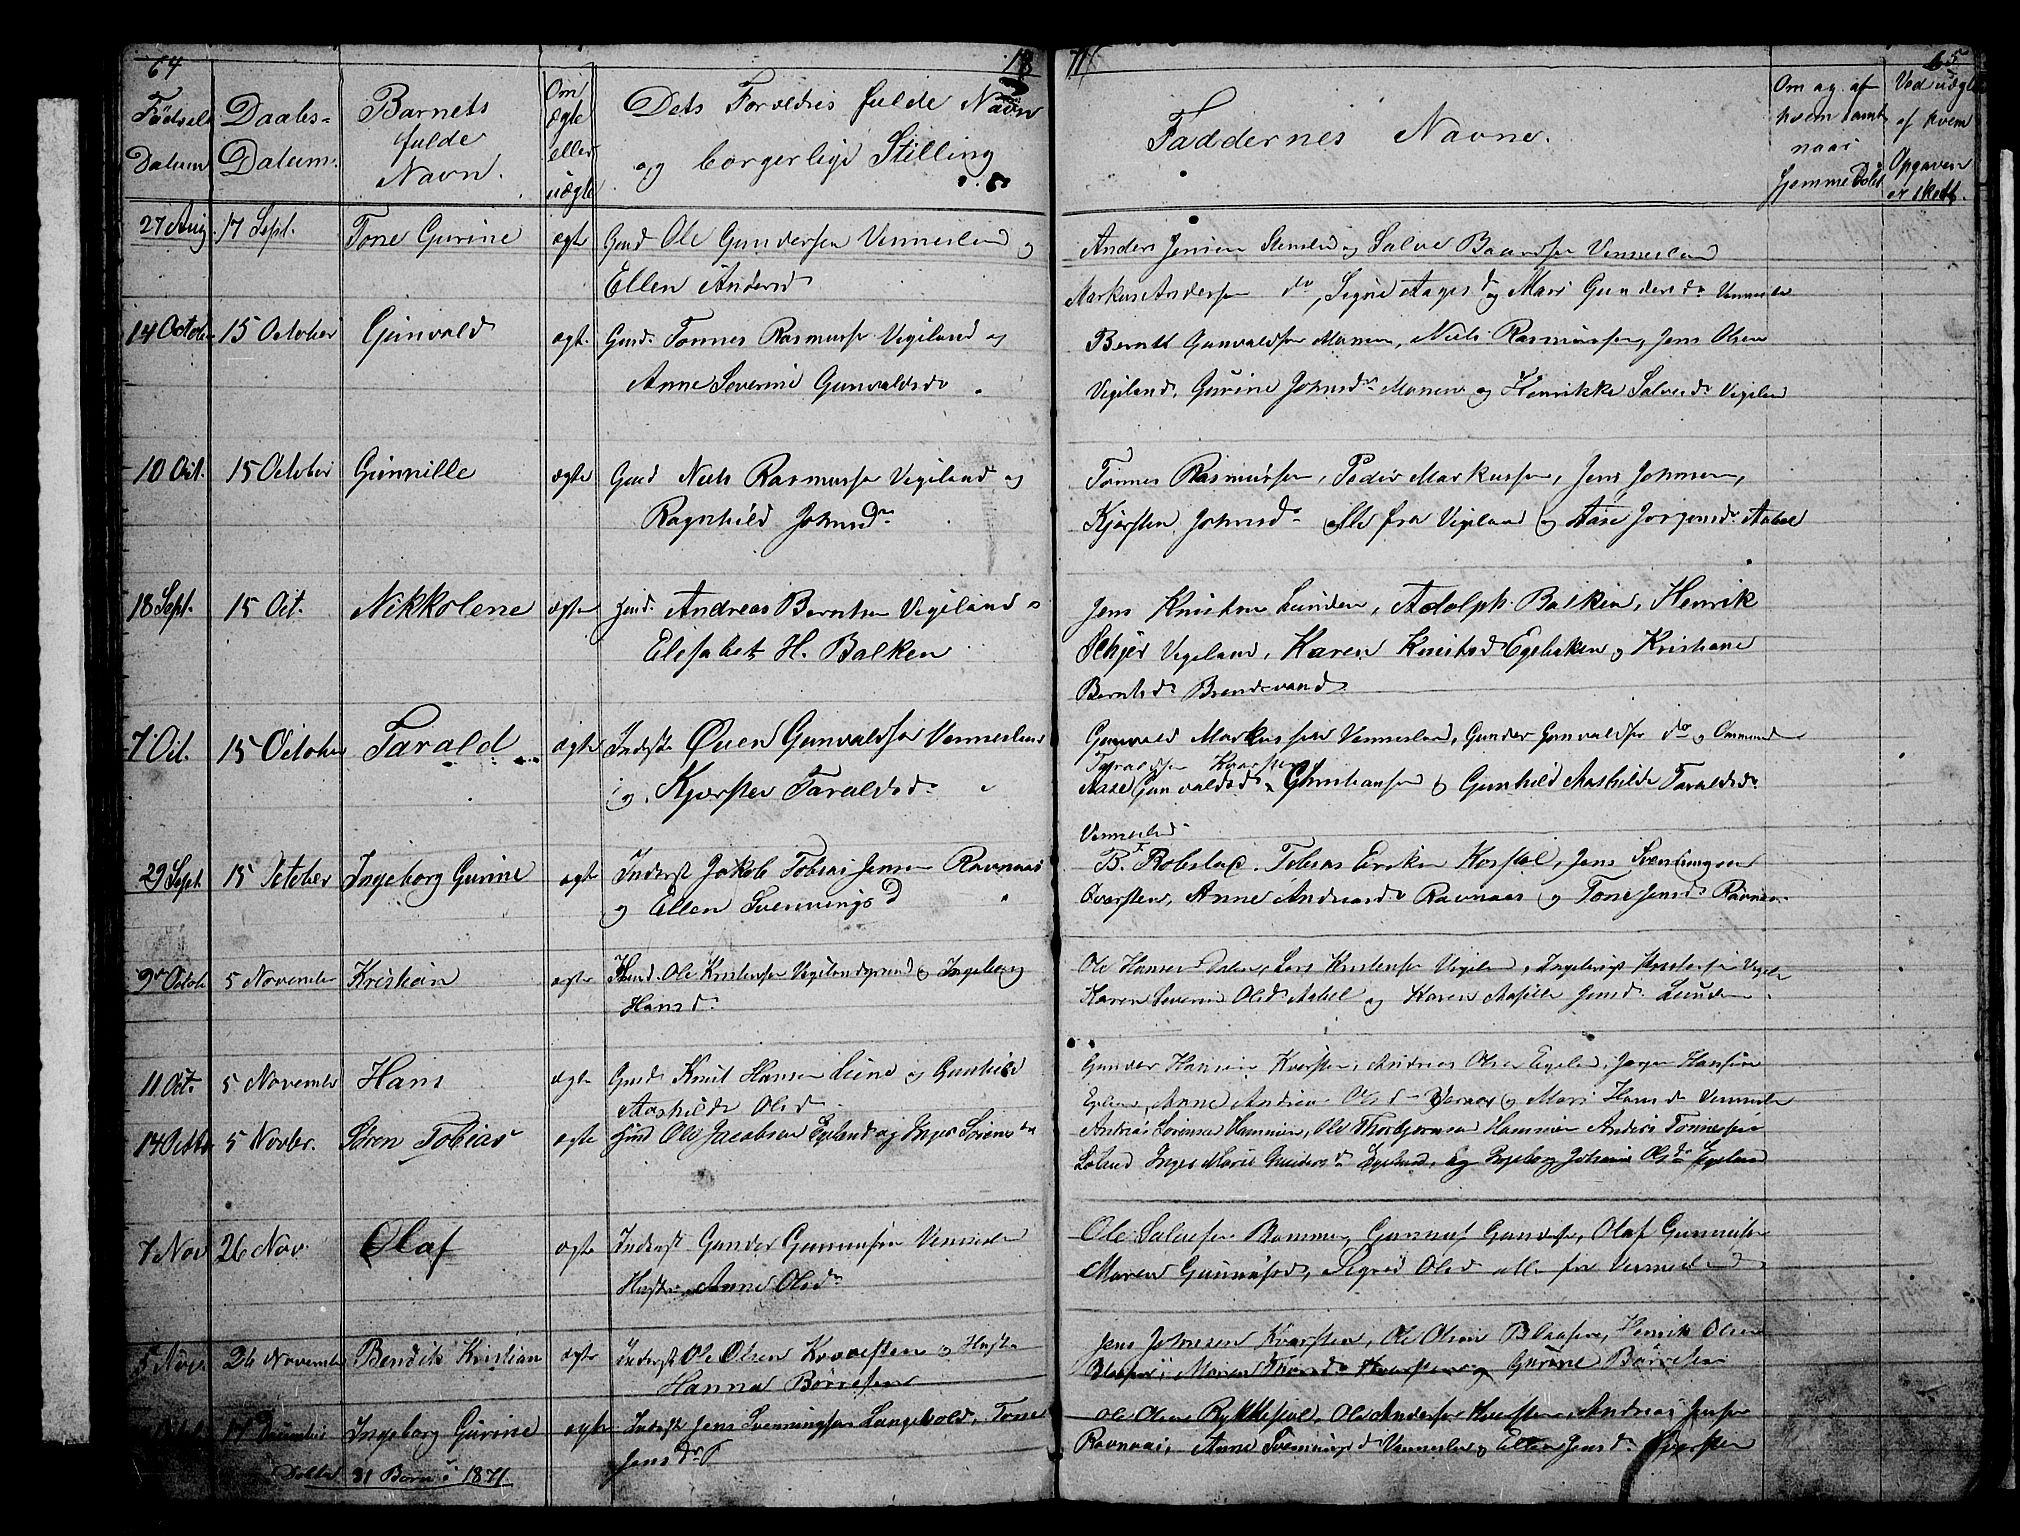 64
18
71
65
Födsels Datum
Daabs-Datum.
Barnets fulde Navn.
Om ægte eller uægte
Dets Forældres fulde Navn og borgerlige Stilling
Faddernes Navne.
Om og af hvem samt naar hjemme Døbt
Ved uægte af hvem Opgaven er skedt.
27 Aug. 17 Sept. Tone Gurine ægte Gmd Ole Gundersen Vennesland og
Ellen Andersd
Anders Jensen og Salve Baardsen Vennesland
Markus Andersen do, Signe Aagesd og Mari Gundersd Vennesla
14 October 15 October Gunvald ægt. Gmd. Tønnes Rasmussen Vigeland og
Anne Severine Gunvaldsd
Berntt Gunvaldsen Monen, Niels Rasmussen, Jens Olsen
Vigeland, Gurine Johnsd Monen og Henrikke Salvesd Vigeland
10 Oct. 15 October Gunnille ægte Gmd Niels Rasmussen Vigeland og
Ragnhild Johnsdr
Tønnes Rasmussen, Peder Markussen, Jens Johnsen,
Kjersten Johnsd alle fra Vigeland og Aase Jørgensd Aabel
18 Sept. 15 Oct. Nikkolene ægte Gmd. Andreas Berntsen Vigeland o
Elisabet H. Balken
Jens Knutsen Lunden, Adolph Balken, Henrik
Vigeland, Karen Knutsd Egebaken og Kristiane
Berntsd Brendevand
7 Oct. 15 October Tarald ægte Inderst Øuen Gunvaldsen Vennesland
og Kjersten Taraldsd
Gunvald Markussen Vennesland, Gunder Gunvaldsen do og Ommund
Taraldsen Kvarsten
Aase Gunvaldsd Christiansen og Gunhild Mathilde Taraldsd
Vennesland
29 Sept 15 October Ingeborg Gurine ægte Inderst Jakob Tobias Jensen Ravnaas
og Ellen Svenningsd
B. Robstad, Tobias Eriksen, Jens Svenningsen
Qvarsten, Anne Andreasd Ravnaas og Tone Jensd Ravnaas
9 Octob 5 November Kristian ægte Hmd. Ole Kristensen Vigelandsgrund og Ingeborg
Hansd.
Ole Hansen Dalen, Lars Kristensen Vigeland, Kristensen Vigela
Karen Severine Olsd Aabel og Karen Jensd. Lunden
11 Oct. 5 November Hans ægte Gmd. Knut Hansen Lund og Gunhild
Mathilde Olsd
Gunder Hansen Kvarsten, Andreas Olsen Egeland, Jørgen Hansen
Egeland, Anne Andrea Olsd og Mari Hansd Vennesla
14 Octbr 5 Novbr. Søren Tobias ægte Gmd Ole Jacobsen Egeland og Inger Sørensdtr
Andreas Sørensen Hammeren, Ole Thorbjørnsen Hammeren Anders Tønnesen
Loland Inger Marie Gundersd Egeland, og Ingeborg Johanne Olsd Egeland
7 Nov 26 Nov. Olaf ægte Inderst Gunder Gunnufsen Vennesla
Hustr. Anne Olsdr
Ole Salvesen Gunnuf Gundersen, Olaf Gunnufsen
Maren Gunnufsd, Sigrid Olsd alle fra Vennesland
26 November Bendik Kristian ægte Inderst Ole Olsen Kvarsten og Hustr
Hanna Børresen
Jens Johnsen Kvarsten, Ole Olsen, Henrik Olsen
Maren Thorsd Kvarsten og Gurine Børresen
17 December Ingeborg Gurine ægte Inderst Jens Svenningsen Langevold, Tone
Jensdr
Ole Olsen, Ole Andersen Kvarsten, Andreas Jensen
Ravnaas, Anne Svenningsd Vennesla og Ellen Jensd. Kvarsten
Døbte 31 Børn i 1871